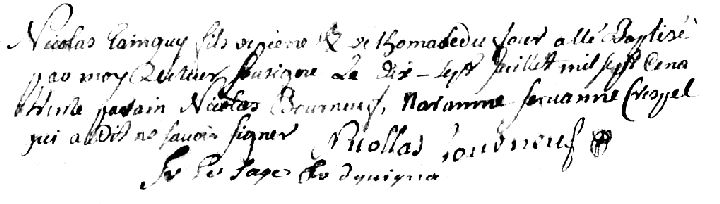 Nicolas Tainguy fils de pierre & de thomase du four a été Baptisé
par moy Recteur soussigne Le dix-sept juillet mil sept Cens
trente parain Nicolas Bourneuf, maramne servanne Crespel
qui a dit ne savoir signer Nicollas bourneuf